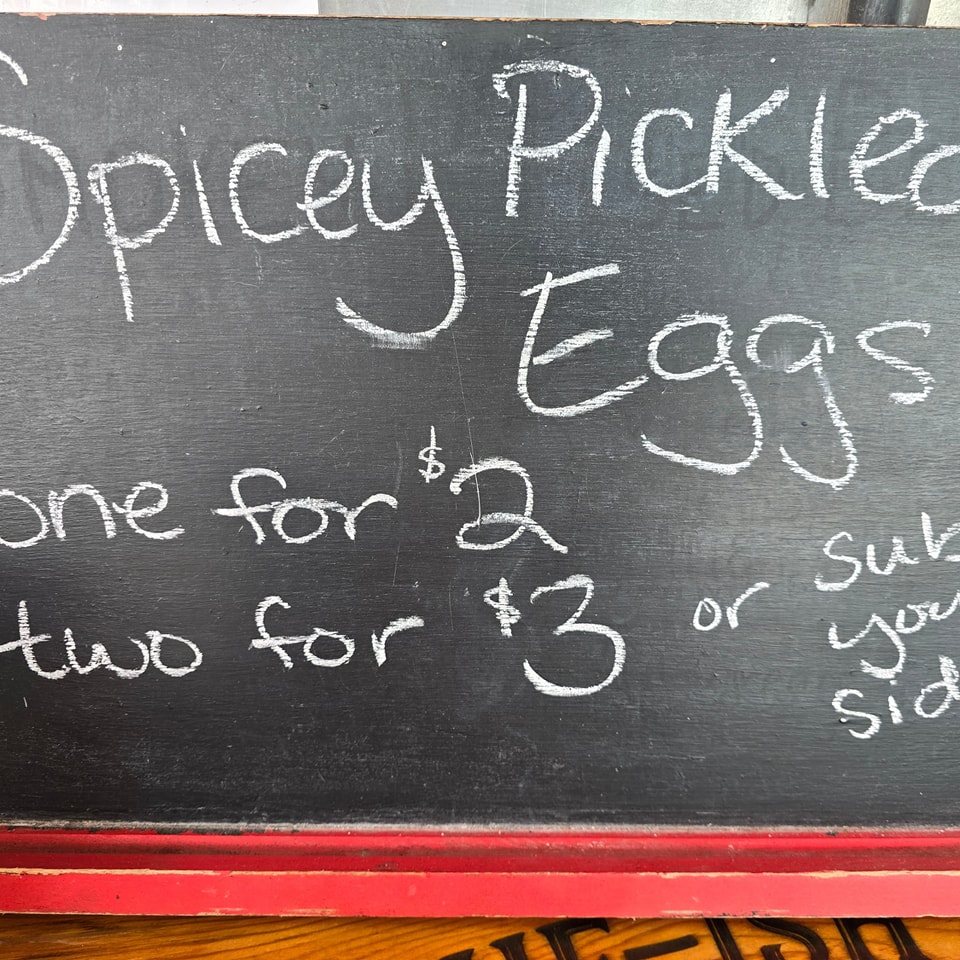 Spicey Pickled
Eggs
one for $2
two for $3 or sub
your
sid